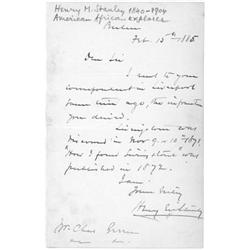 Henry M. Stanley 1840-1904
American African explorer
Berlin
Feb. 15th 1885
Dear Sir
I sent to your
correspondent in Liverpool
some time ago, the information
you desired.
Livingstone was
discovered in Nov 9 & 10th 1871.
"How I found Livingstone" was
published in 1872.
I am
Yours truly
Henry M Stanley
Mr. Chas